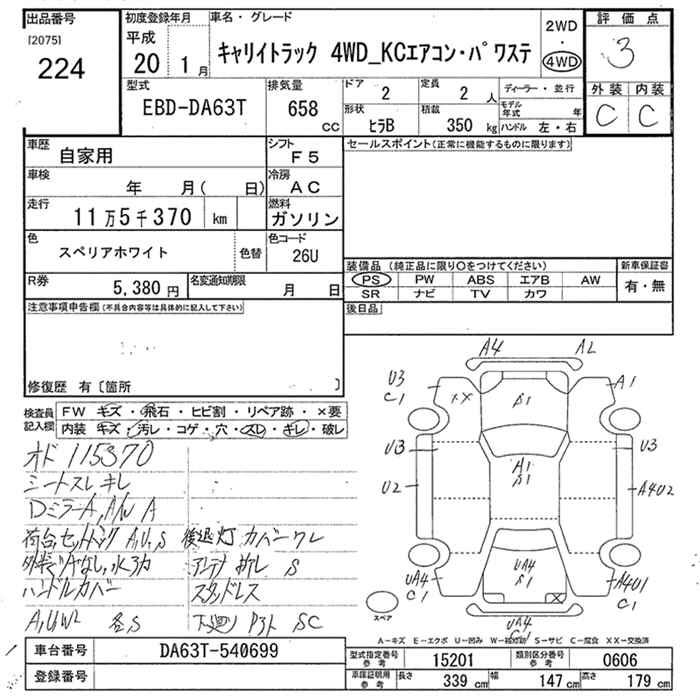 出品番号
[2075]
224
初度登録年月
平成
20 1月
車名・グレード
キャリイトラック 4WD_KCエアコン・パワステ
2WD
・
4WD
評価点
3
外装 内装
C C
型式
EBD-DA63T
排気量
658
cc
ドア
2
定員
2 人
形状
ヒラB
積載
350 kg
ディーラー・並行
モデル年式 年
ハンドル 左・右
車歴
自家用
シフト
F5
車検
年 月( 日)
冷房
AC
走行
11万5千370 km
燃料
ガソリン
色
スペリアホワイト
色替
色コード
26U
R券
5,380 円
名変通知期限
月 日
セールスポイント(正常に機能するものに限ります)
装備品(純正品に限り○をつけてください)
PS PW ABS エアB AW
SR ナビ TV カワ
新車保証書
有・無
後日品
注意事項申告欄(不具合内容等は具体的に記入して下さい)
修復歴 有〔箇所 〕
検査員記入欄
FW キズ・飛石・ヒビ割・リペア跡・×要
内装 キズ・汚レ・コゲ・穴・スレ・キレ・破レ
オド 115370
シートスレ キレ
DミラーA, A/W A
A,U,S 後退灯カバーワレ
アンテナ折レ S
ハンドルカバー
スタッドレス
A,U,W2 各S 下廻り P3ト SC
A4 A2
U3
C1
XX
A1
S1
U3
A1
S1
U3
U2
A4U2
UA4
C1
UA4
S1
X
A4U1
C1
UA4
C1
スペア
A-キズ E-エクボ U-凹み W-補修跡 S-サビ C-腐食 XX-交換済
車台番号
DA63T-540699
登録番号
型式指定番号
参考
15201
類別区分番号
参考
0606
車庫証明用
参考
長さ
339 cm
幅
147 cm
高さ
179 cm